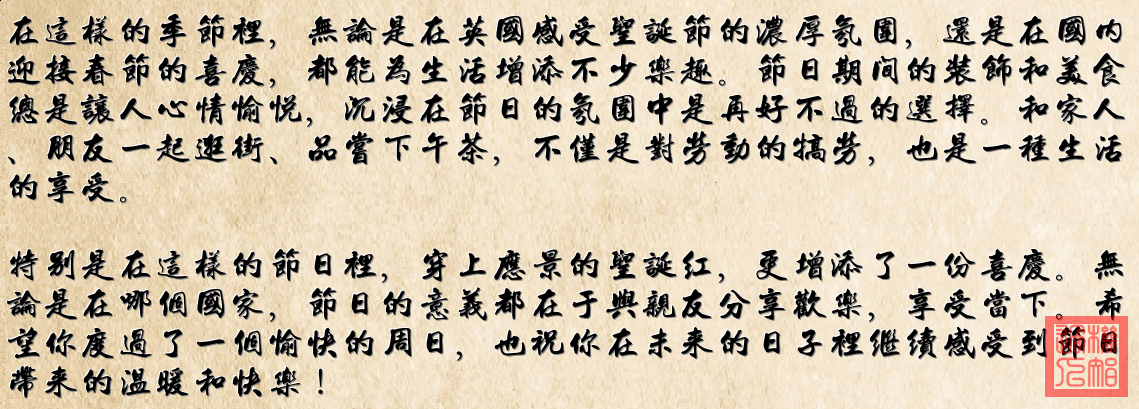 在這樣的季節裡，無論是在英國感受聖誕節的濃厚氛圍，還是在國內
迎接春節的喜慶，都能為生活增添不少樂趣。節日期间的裝飾和美食
總是讓人心情愉悅，沉浸在節日的氛圍中是再好不過的選擇。和家人
、朋友一起逛街、品嘗下午茶，不僅是對勞動的犒勞，也是一種生活
的享受。
特別是在這樣的節日裡，穿上應景的聖誕紅，更增添了一份喜慶。無
論是在哪個國家，節日的意義都在于與親友分享歡樂，享受當下。希
望你度過了一個愉快的周日，也祝你在未來的日子裡繼續感受到節日
帶來的溫暖和快樂！